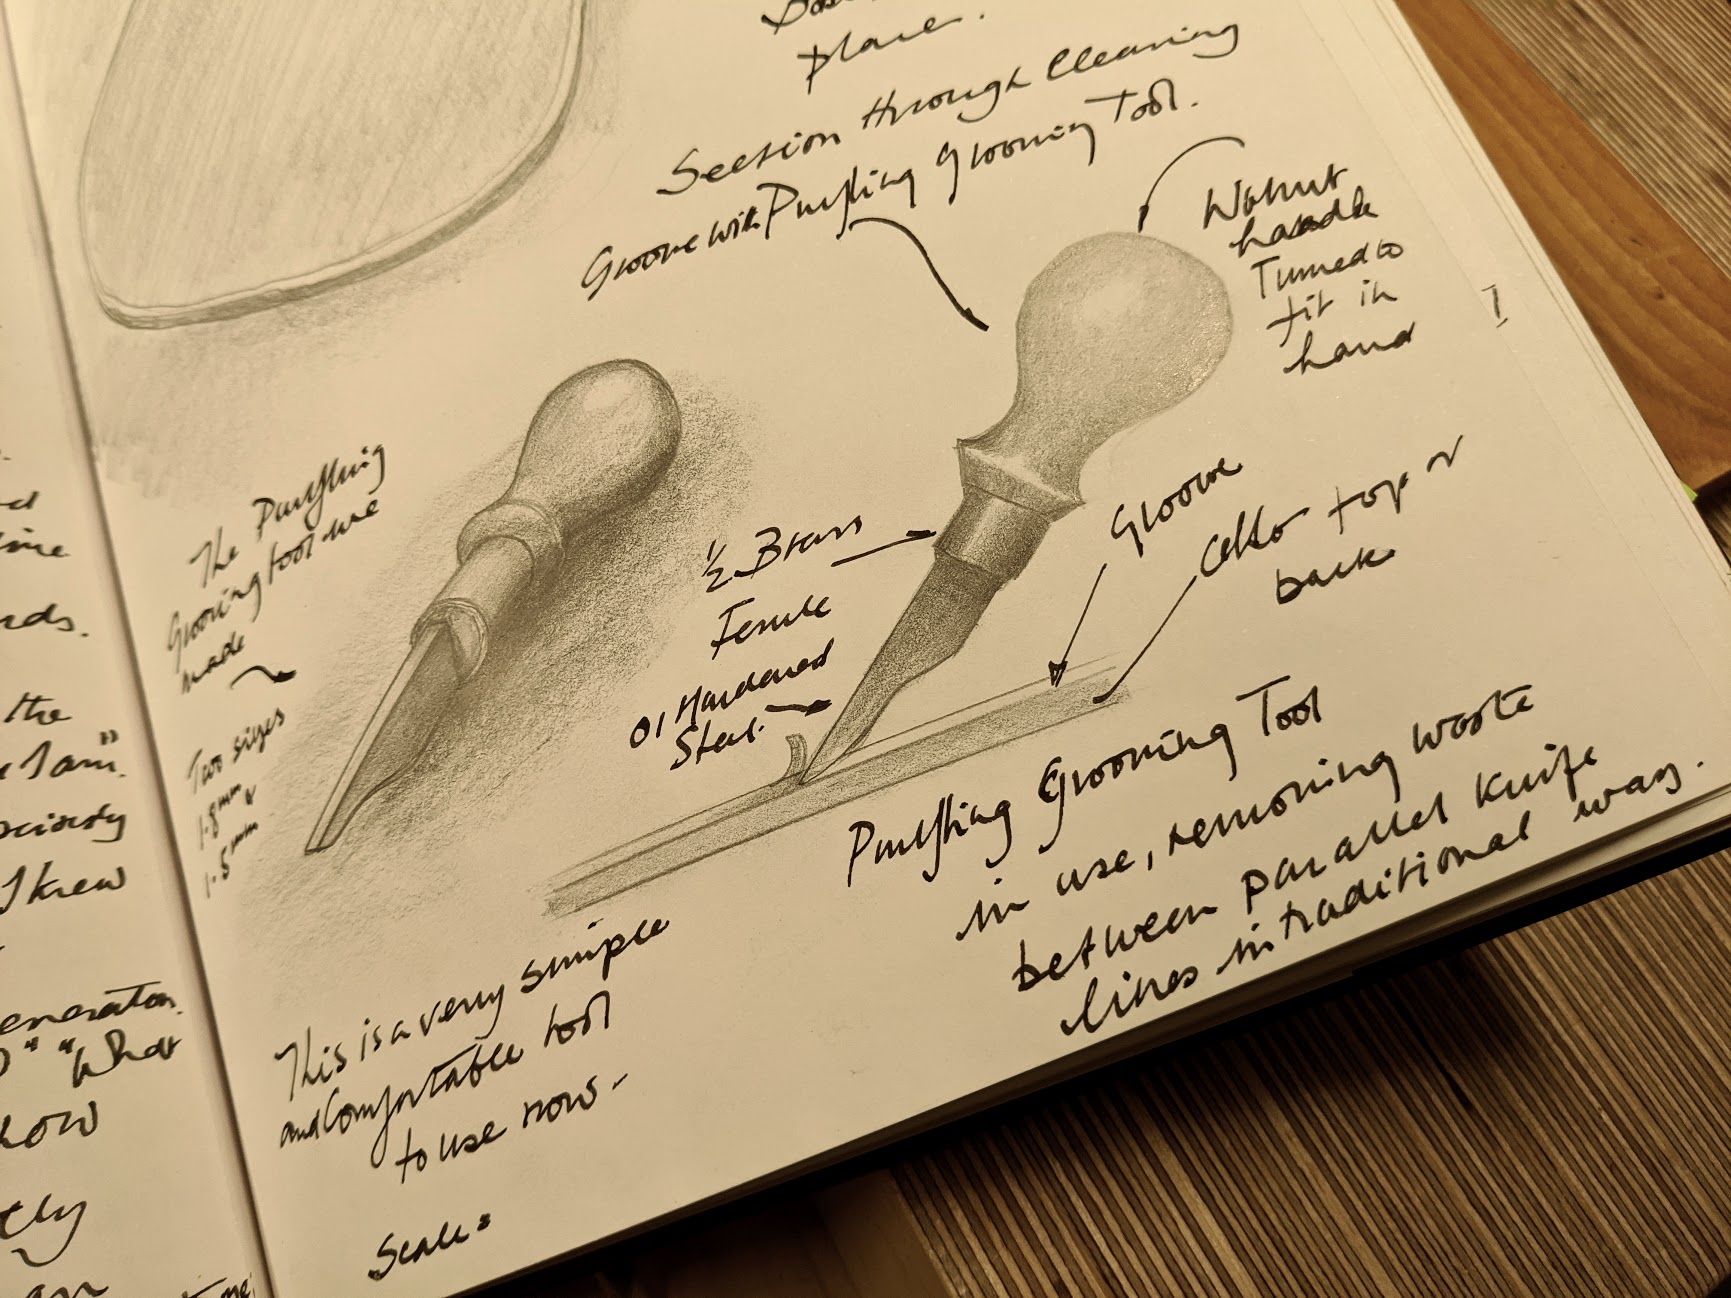 place.
Section through Cleaning
Groove with Purfling Grooving Tool.
Walnut
handle
Turned to
fit in
hand
The Purfling
Grooving tool we
made
Two sizes
1.8mm &
1.5mm
1/2 Brass
Ferrule
O1 Hardened
Steel.
Groove
Cello top or
back
Purfling Grooving Tool
in use, removing waste
between parallel knife
lines in traditional way.
This is a very simple
and Comfortable tool
to use now -
Scale:
the
I am"
I knew
"What